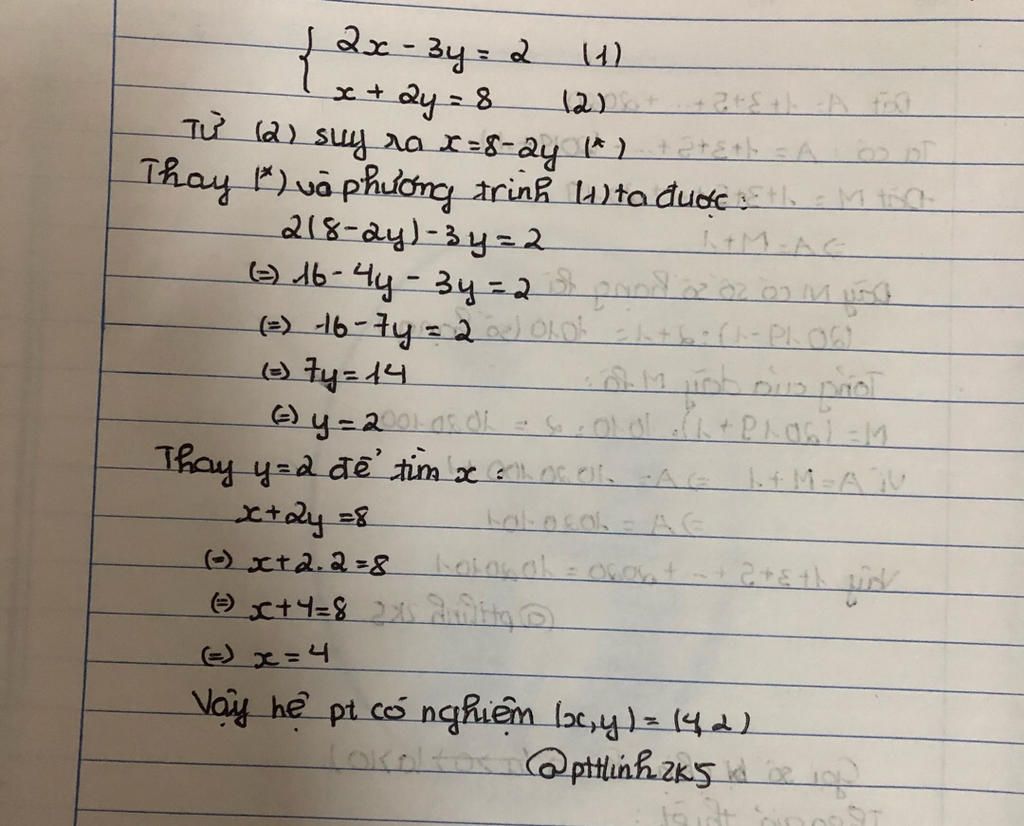 { 2x - 3y = 2 (1)
x + 2y = 8 (2)
Từ (2) suy ra x=8-2y (*)
Thay (*) vào phương trình (1) ta được:
2(8-2y)-3y=2
(=) 16-4y-3y=2
(=) 16-7y=2
(=) 7y=14
(=) y=2
Thay y=2 để tìm x:
x+2y=8
(=) x+2.2=8
(=) x+4=8
(=) x=4
Vậy hệ pt có nghiệm (x,y)=(4,2)
@ptHlinh2k5